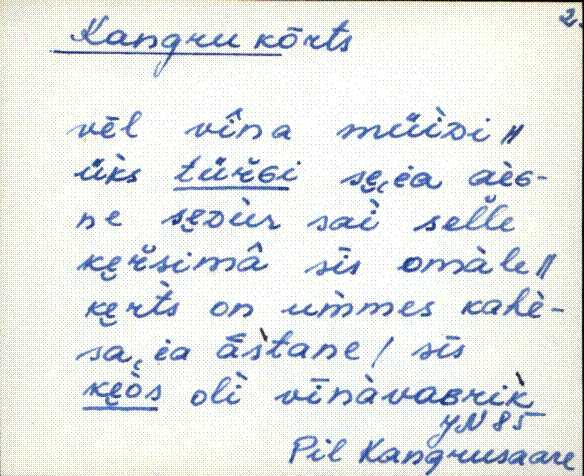 2.
Kangru kõrts
vēl vîna müìᴅi //
üks türɢi sę̬,ea aèɢ-
ne sęᴅùr saì selle
kęřsimâ sīs omàle //
kęřts on ummes kahè-
sa,ea āstane / sīs
kęòs olì vīnàvaʙrìk
YN 85
Pil Kangrusaare